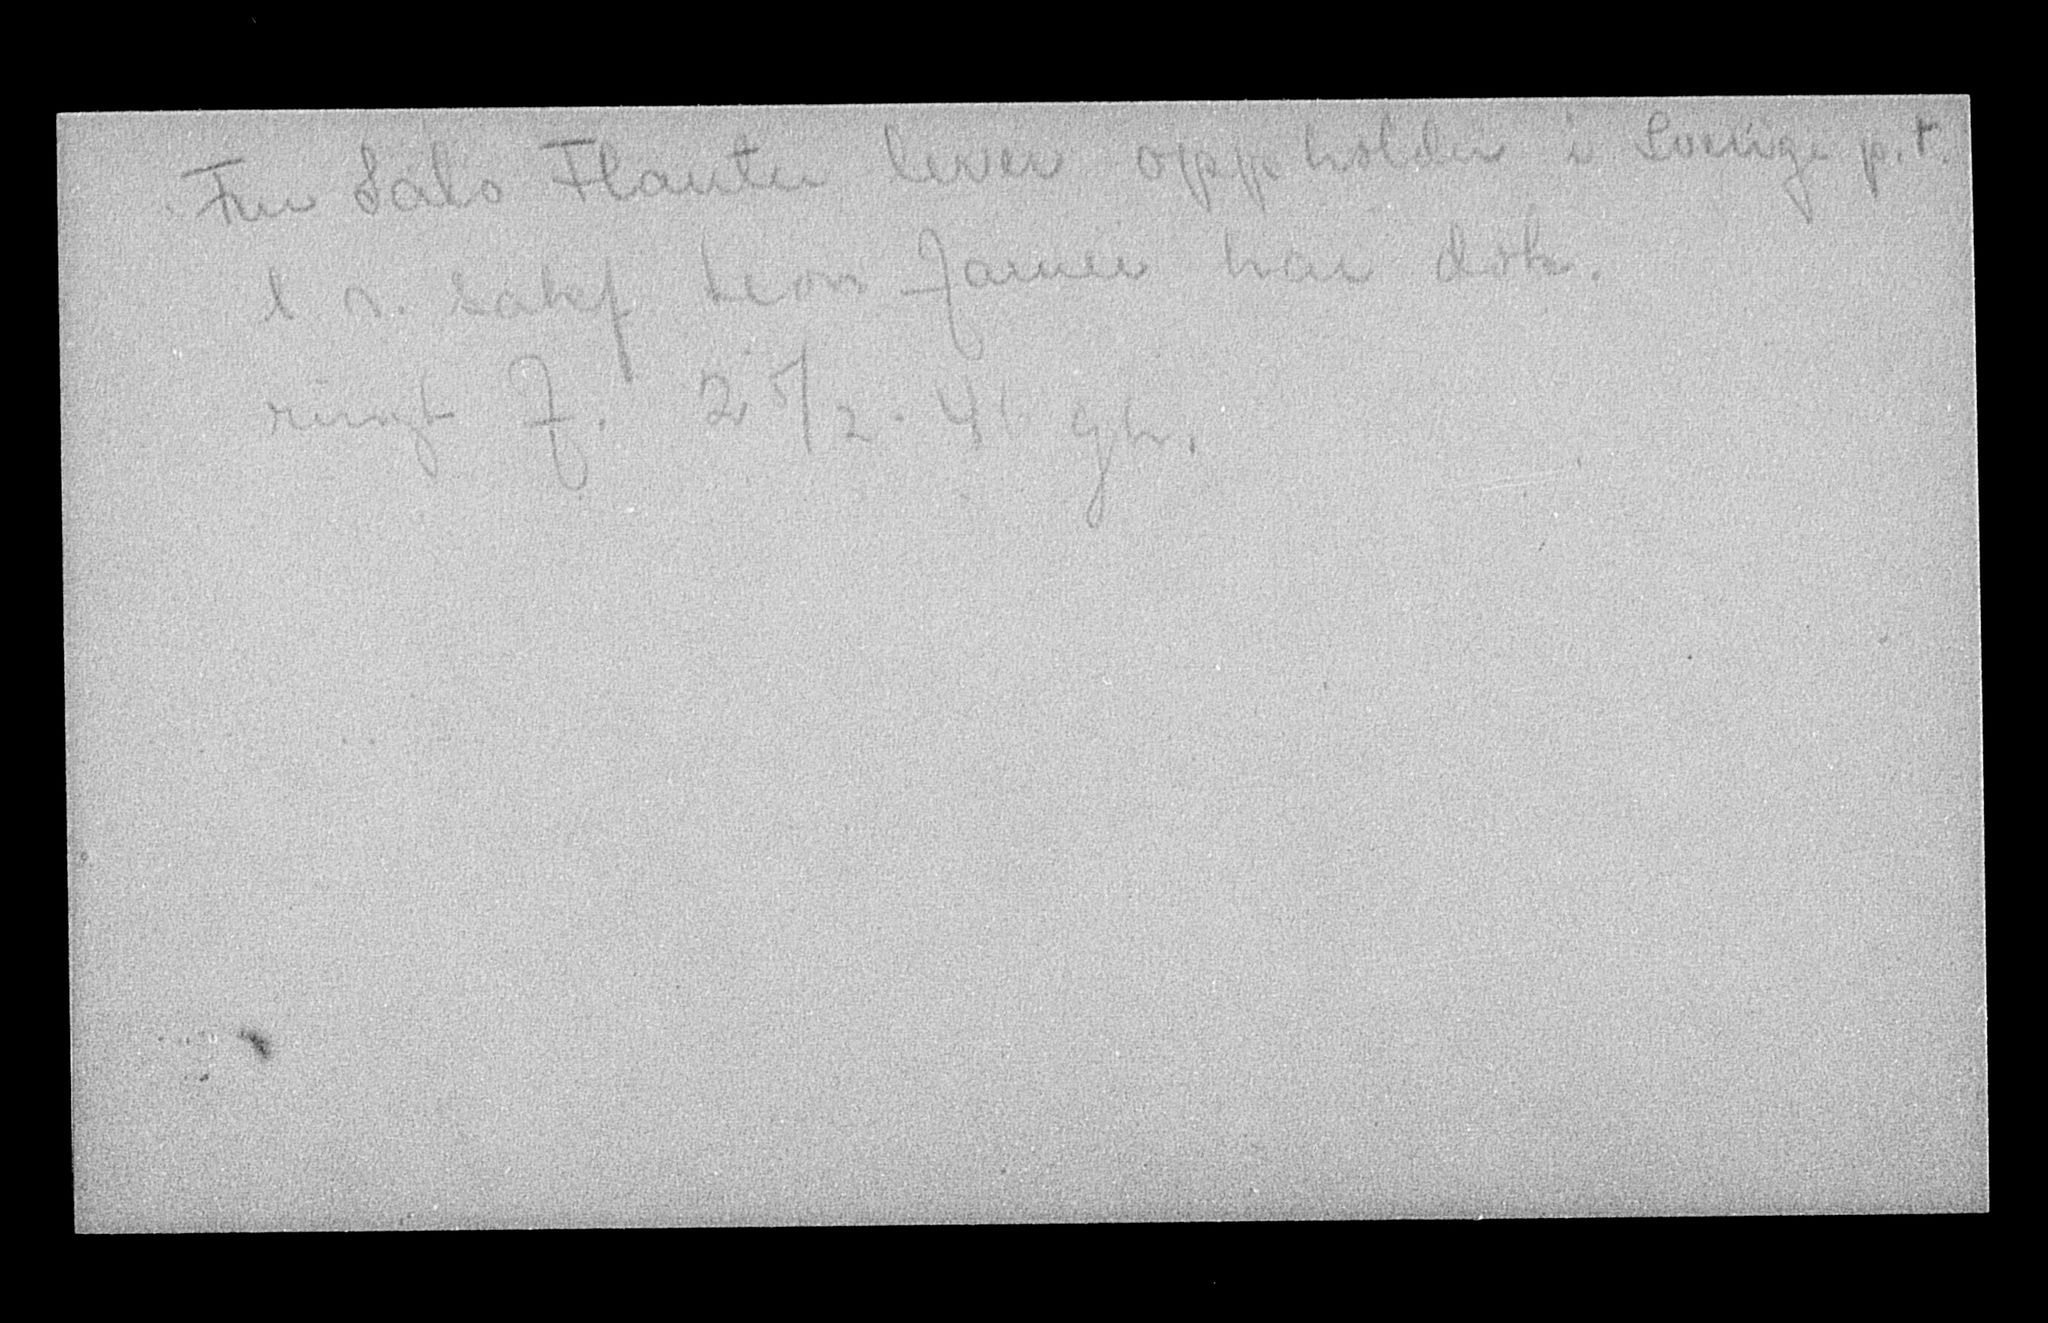 Fru Salo Flanter lever oppholder i Sverige p.t.
l r. sakf Leon Jarner har dok.
ringt J. 25/2.46 gh.